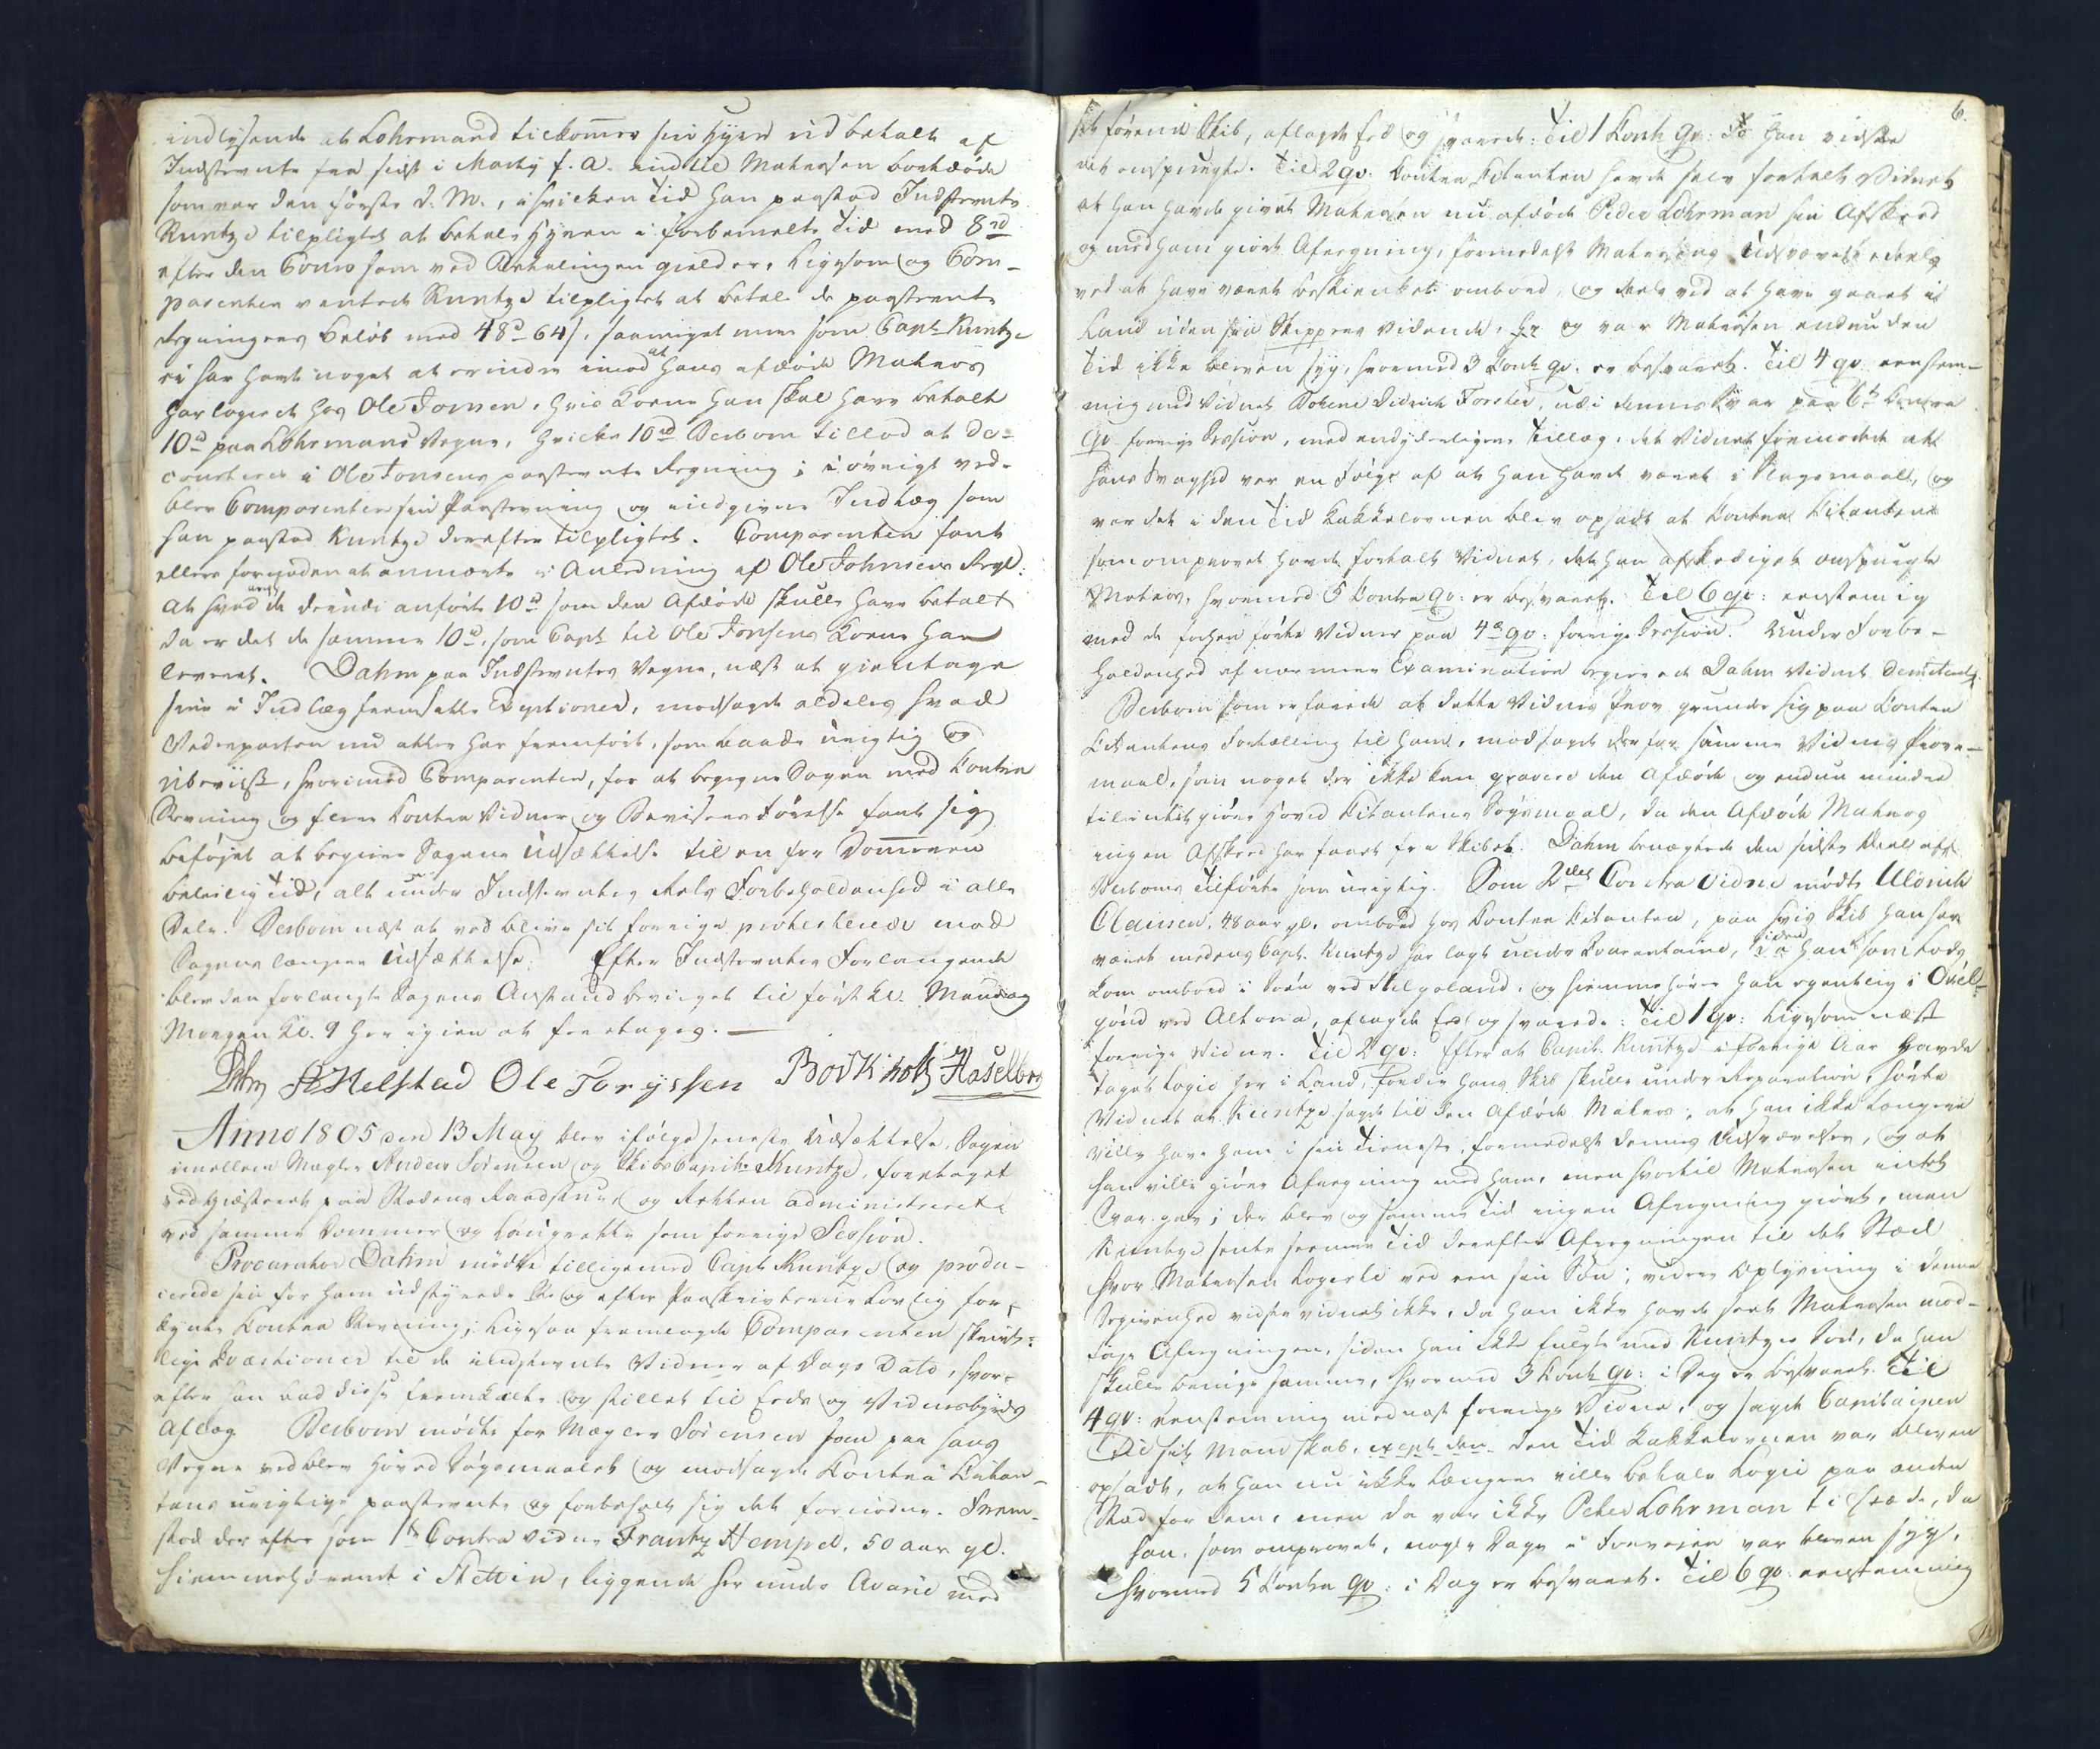 indlysende at Lohrmand tilkommer sin Hyre udbetalt af
Indstevnte fra sidst i Marty f. A. indtil Matrosen bortdøde
som var den første d. M., i hvilken Tid han paastod Indstevnte
Kuntze tilpligtet at betale Hyren i forbemelte Tid med 8 rd
efter den Cours som ved Betalingen gielder. Ligesom og Com-
parenten ventede Kuntze tilpligtet at betale de paastevnte
Regningers Beløb med 48 d 64 s, saameget mere som Capt. Kuntze
ei har havt noget at erindre imod at hans afdøde Matros
har logeret hos Ole Jonsen, hvis Kone han skal have betalt
10 d paa Lohrmans Vegne, hvilke 10 rd Desborn tillod at de-
courteres i Ole Jonsens paastevnte Regning; i øvrigt ved-
blev Comparenten sin Paastevning og indgivne Indlæg som
han paastod Kuntze derefter tilpligtet. Comparenten fant
ellers fornøden at anmærke i Anledning af Ole Johnsens Regl:
At hvad de deri anførte 10 d som den Afdøde skulle have betalt
da er det de samme 10 d, som Capt. til Ole Jonsens Kone har
leveret. Dahm paa Indstevntes Vegne, næst at gientage
sine i Indlæg fremsatte Exeptioner, modsagde aldeles hvad
Vederparten nu atter har fremført, som baade urigtig og
ubeviist, hvorimod Comparenten, for at begegne Sagen med Contra
Stevning og flere Contra Vidner og Bevisers Førelse fant sig
beføjet at begiere Sagens Udsættelse til en for Dommeren
beleilig Tid, alt under Indstevntes Rets Forbeholdenhed i alle
Dele. Desborn næst at vedblive sit forrige protesterede mod
Sagens længere Udsættelse. Efter Indstevntes Forlangende
blev den forlangte Sagens Anstand bevilget til førstkl. Mandag
Morgen Kl. 9 her igien at foretages. —
Dahm St Helstad Ole Toryssen Borkholz Haselbro
Anno 1805 den 13 May blev ifølge seneste Udsættelse, Sagen
imellem Mægler Anders Sørensen og Skibscapit: Kuntze, foretaget
ved Giesteret paa Stædens Raadstue og Retten administreret
ved samme Dommer og Laugrette som forrige Session.
Procurator Dahm mødte tilligemed Capt. Kuntze og produ-
cerede sin for ham udstyrede og efter Paaskrivterne Lovlig for-
kyndte Contra Stevning; Ligesaa fremlagde Comparenten skrivt-
lige Qvæstioner til de indstevnte Vidner af Dags Dato, hvor-
efter han bad disse fremkaldte og stillet til Eeds og Vidnesbyrds
Aflæg Desborn mødte for Mægler Sørensen som paa hans
Vegne vedblev Hoved Søgsmaalet og modsagde Contra Citan-
tens urigtige paastevnte og forbeholt sig det fornødne. Frem-
stod der efter som 1ste Contra Vidne Frantz Hempel, 50 aar gl.
hiemmehørende i Stettin, liggende her under Avarie med
6.
sit førende Skib, aflagde Eed og svarede: Til 1 Cont. Qv: Jo han vidste
det omspurgte. Til 2 qv: Contra Citanten havde selv fortalt Vidnet
at han havde givet Matrosen nu afdøde Peder Lohrman sin Afskeed
og med ham giort Afregning, formedelst Matrosens Udsvævelse deels
ved at have været beskienket ombord, og deels ved at have gaaet i
Land uden sin Skippers Vidende, og var Matrosen endnu den
Tid ikke bleven syg, hvormed 3 Cont. qv. er besvaret. Til 4 qv eenstem-
mig med Vidnet Didrich Forster, udi dennes Svar paa 6te Contra
Qv forrige Session, med endydeligere Tillæg, det Vidnet formodede at
hans Svaghed var en Følge af at han havde været i Slagsmaall, og
var det i den Tid Kakkelovnen blev opsadt at Contra Citanten
som omprovet havde fortalt Vidnet, det han afskediget omspurgte
Matros, hvormed 5 Contra Qv: er besvaret. Til 6 qv: eenstemig
med de forhen førte Vidner paa 4de qv: forrige Session. Under Forbe-
holdenhed af nærmere Examination begierede Dahm Vidnet demitteret.
Desborn som erfarede at dette Vidnes Prov grunder sig paa Contra
Citantens Fortælling til ham, modsagde derfor samme Vidnes Prove-
maal, som noget der ikke kan gravere den Afdøde og endnu mindre
tilintetgiøre Hoved Citantens Søgsmaal, da den Afdøde Matros
ingen Afskeed har faaet fra Skibet. Dahm benægtede den sidste Deel af
Desborns Tilførte som urigtig. Som 2det Contra Vidne mødte Uldrich
Clausen, 48 aar gl. ombord hos Contra Citanten, paa hvis Skib han har
været medens Capt. Kuntze har lagt under Quarantaine, siden han som Lods
kom ombord i Søen ved Helgoland, og hiemmehører han egentlig i Oevel-
gønd ved Altona, aflagde Eed og svarede: Til 1 qv: Ligesom næst
forrige Vidne. Til 2 qv: Efter at Capit. Kuntze i forrige Aar havde
taget Logie her i Land, fordie hans Skib skulle under Reparation, hørte
Vidnet at Kuntze sagde til den Afdøde Matros, at han ikke længere
ville have ham i sin Tieneste, formedelst dennes Udsvævelser, og at
han ville giøre Afregning med ham, men hvortil Matrosen intet
Svar gav; der blev og samme Tid ingen Afregning giort, men
Kuntze sente samme Tid derefter Afregningen til det Stæd
hvor Matrosen Logerte ved een sin Søn; videre Oplysning i denne
Begivenhed vidste vidnet ikke, da han ikke havde seet Matrosen mod-
tage Afregningen, siden han ikke fulgte med Kuntzes Søn, da han
skulle bringe samme, hvormed 3 Cont. Qv: i Dag er besvaret. Til
4 qv: eenstemmig med næst forrige Vidne, og sagde Capitainen
til sit Mandskab, den Tid Kakkelovnen var bleven
opsadt, at han nu ikke længere ville betale Logie paa andre
Stæd for dem, men da var ikke Peter Lohrman tilstæde, da
han, som omprovet, nogle Dage i Forveien var bleven syg,
hvormed 5 Contra qv: i Dag er besvaret. Til 6 qv: eenstemmig